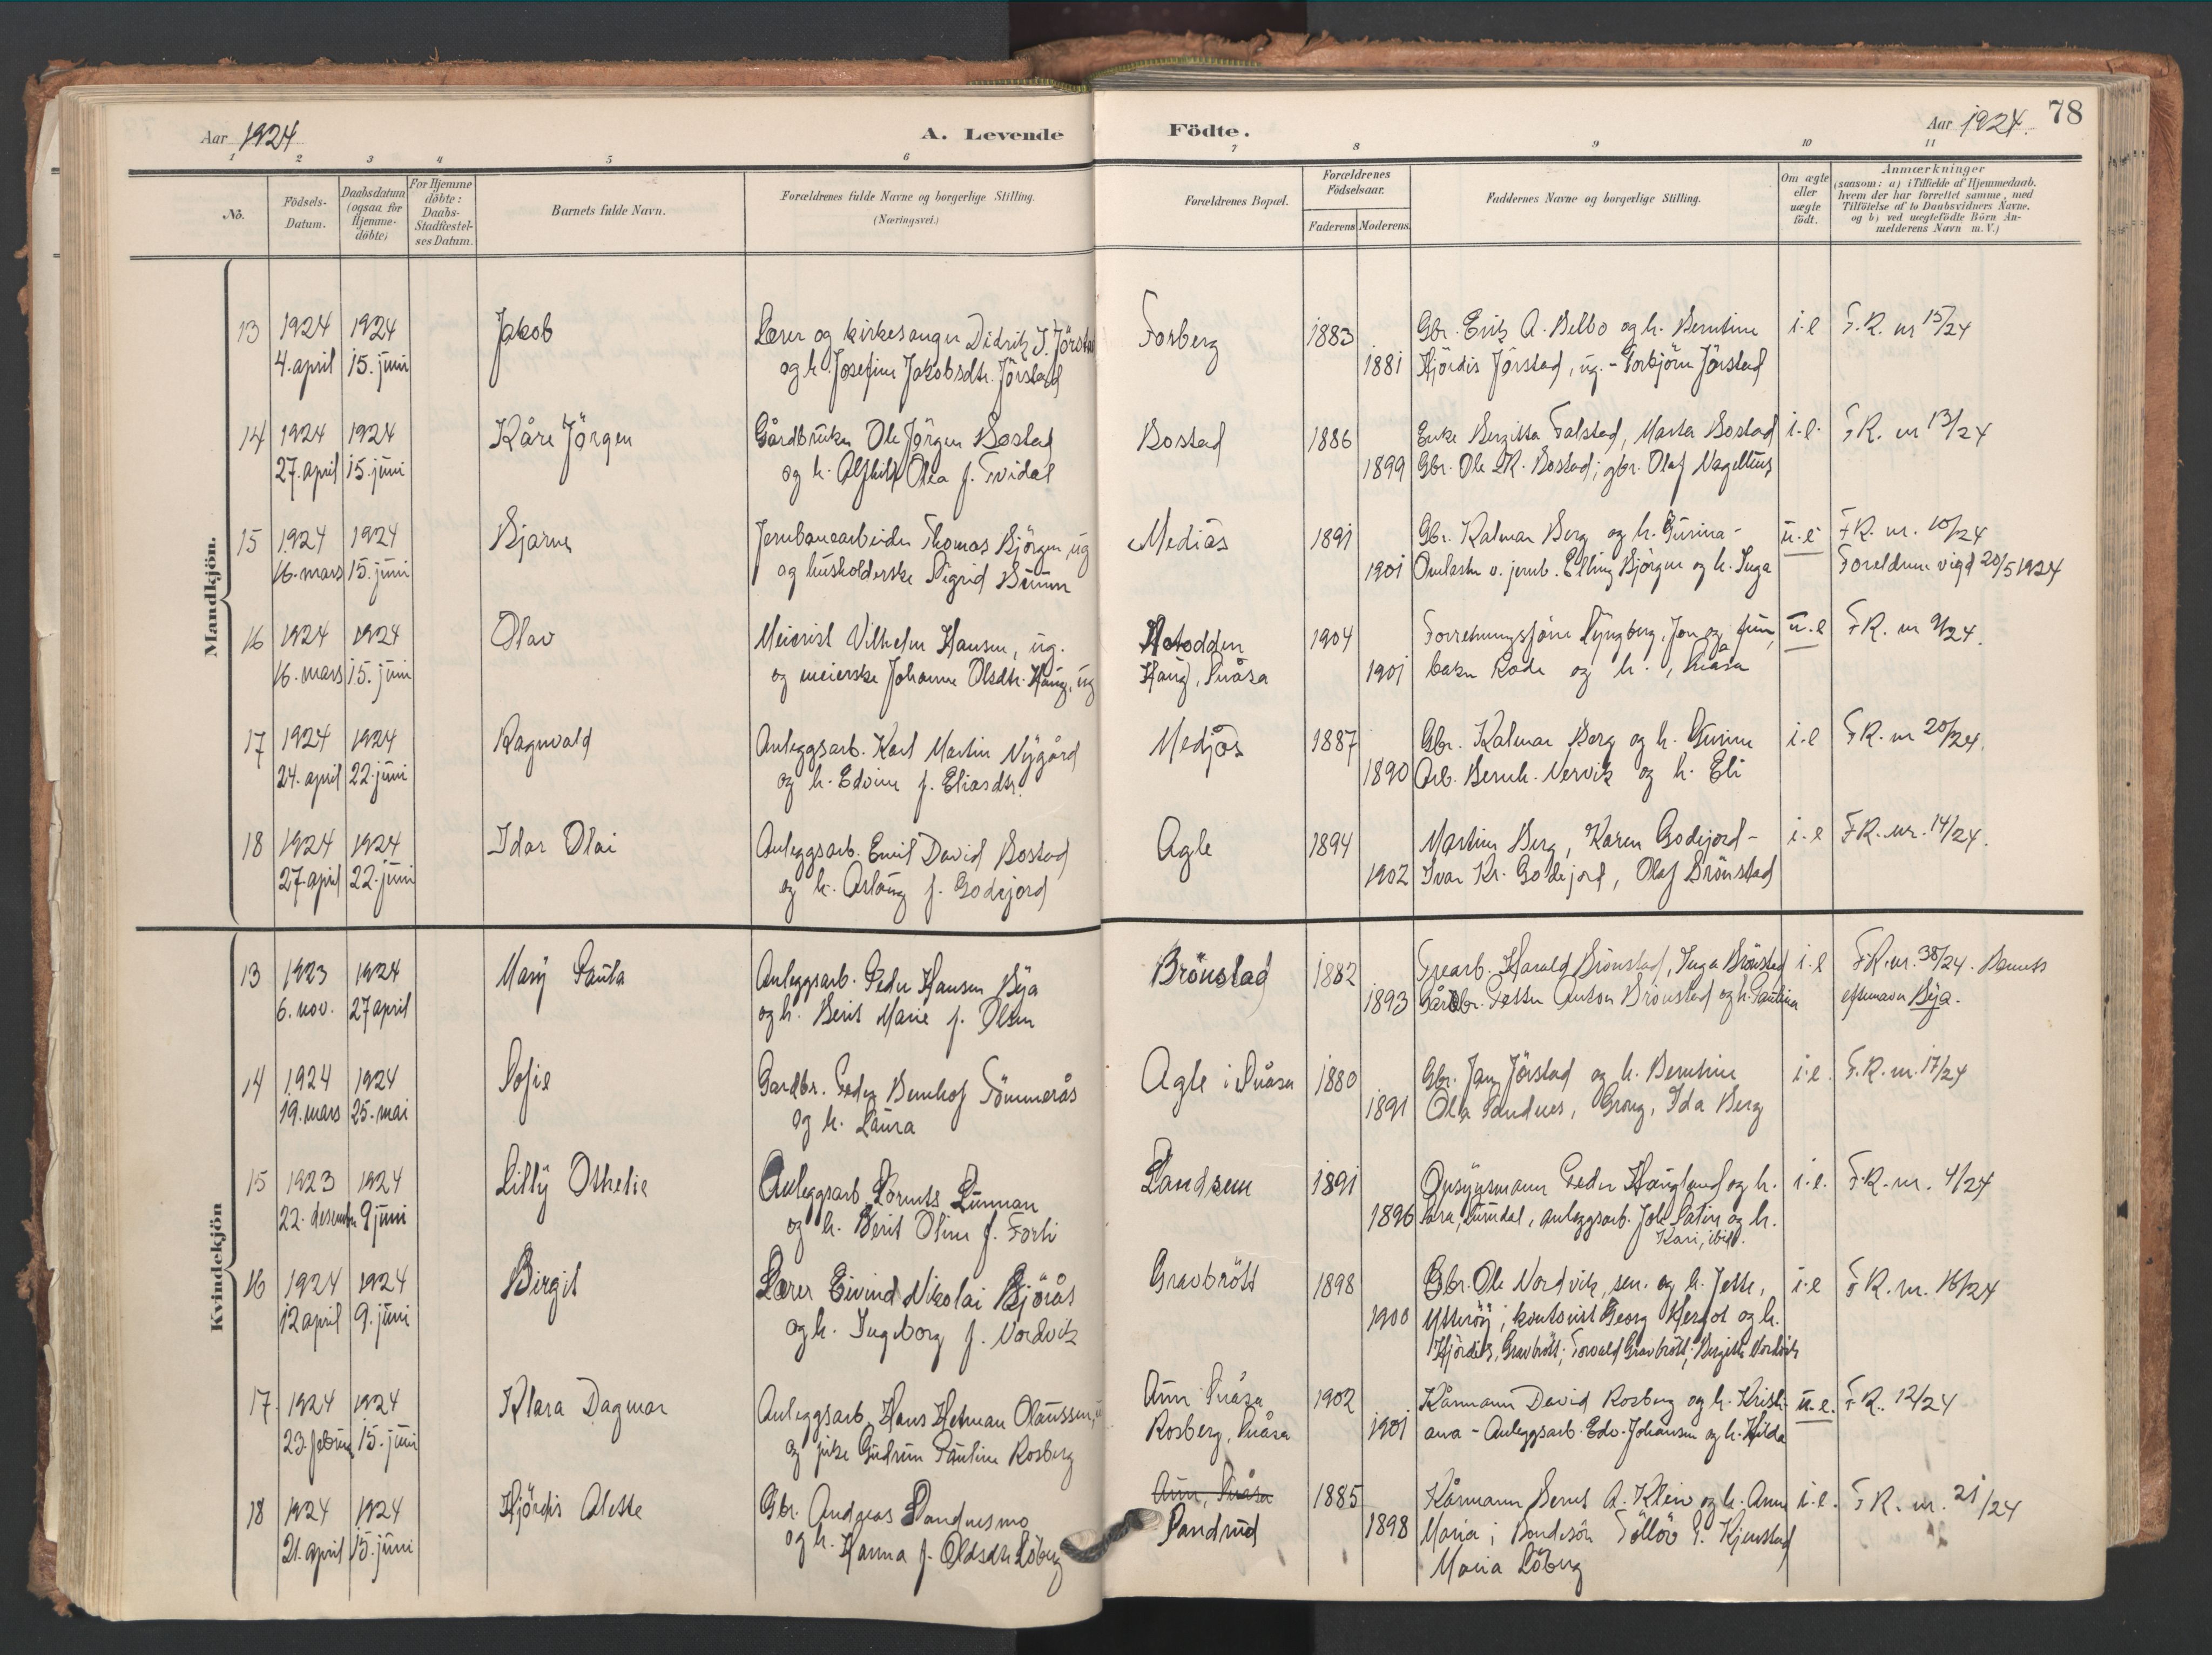 Aar 1924
A. Levende Födte.
Aar 1924.
78
1 2 3 4 5 6 7 8 9 10 11
No.
Födsels-Datum.
Daabsdatum (ogsaa for Hjemmedöbte)
For Hjemmedöbte: Daabs-Stadfæstelses Datum.
Barnets fulde Navn.
Forældrenes fulde Navne og borgerlige Stilling. (Næringsvei.)
Forældrenes Bopæl.
Forældrenes Födselsaar.
Faderens
Moderens
Faddernes Navne og borgerlige Stilling.
Om ægte eller uægte født.
Anmærkninger
(saasom: a) i Tilfælde af Hjemmedaab, hvem der har forrettet samme, med Tilföielse af to Daabsvidners Navne, og b) ved uægtefödte Börn Anmelderens Navn m. V.)
Mandkjön.
13 1924 1924 Jakob Lærer og kirkesanger Didrik J. Jörstad Forberg 1883 Gbr. Erik A. Belbo og h. Berntine i.e F.R. nr 15/24
4. april 15. juni og h. Josefine Jakobsdtr. Jörstad 1881 Hjördis Jörstad, ug. - Torbjörn Jörstad
14 1924 1924 Kåre Jörgen Gårdbruker Ole Jörgen Bostad Bostad 1886 Enke Bergitta Falstad, Marta Bostad i.e. F.R. nr 13/24
27. april 15. juni og h. Alfhild Olea f. Tvidal 1899 Gbr. Ole K. Bostad; gbr. Olaf
15 1924 1924 Bjarne Jernbanearbeider Thomas Björgen, ug Mediås 1891 Gbr. Kalmar Berg og h. Gurina - u.e F.R. nr. 10/24
16. mars 15. juni og husholderske Sigrid 1901 v. jernb. Elling Björgen og h. Inga Foreldrene vigd 20/5 1924
16 1924 1924 Olav Meierist Vilhelm Hansen, ug. Notodden 1904 u.e F.R. nr 9/24.
16. mars 15. juni og meierske Johanne Olsdtr. Haug, ug Haug, Snåsa 1901 baker og h., Snåsa
17 1924 1924 Ragnvald Anleggsarb. Karl Martin Nygård Medjås 1887 Gbr. Kalmar Berg og h. Gurine i.e F.R. nr 20/24.
24. april 22. juni og h. Edvine f. Eliasdtr. 1890 Arb. Bernh. Nervik og h. Eli
18 1924 1924 Idar Olai Anleggsarb. Emil David Bostad Agle 1894 Martin Berg, Karen Godejord - i.e F.R. nr. 14/24.
27. april 22. juni og h. Aslaug f. Godejord 1902 Ivar Kr. Godejord, Olaf Brönstad
Kvindekjön
13 1923 1924 Mary Paula Anleggsarb. Peder Hansen Bya Brönstad 1882 Trearb. Harald Brönstad, Inga Brönstad i.e F.R. nr. 38/24. Barnets
6. nov. 27 april og h. Berit Marie f. Olsen 1893 Gårdbr. Petter Anton Brönstad og h. Paulina efternavn Bya.
14 1924 1924 Sofie Gardbr. Peder Bernhof Tömmerås Agle i Snåsa 1880 Gbr. Jan Jörstad og h. Berntine i.e. F.R. nr. 17/24
19. mars 25. mai og h. Laura 1891 Ola Sandnes, Grong, Ida Berg
15 1923 1924 Lilly Othelie Anleggsarb. Lorents Lunnan Landsem 1891 Opsynsmann Peder Haugland og h. i.e. F.R. nr. 4/24
22. desember 9 juni og h. Berit Oline f. Forli 1896 Sara, anleggsarb. Joh. Satin og h.
Kari, ibid.
16 1924 1924 Birgit Lærer Eivind Nikolai Björäs Gravbrött 1898 Gbr. Ole Nordvik, sen. og h. Jette, i.e F.R. nr. 16/24
12 april 9. juni og h. Ingeborg f. Nordvik 1900 Ytteröy; kontorist Georg og h.
Hjördis, Gravbrött; Torvald Gravbrött; Birgitte Nordvik
17. 1924 1924 Klara Dagmar Anleggsarb. Hans Herman Olaussen, u Aun Snåsa 1902 Kårmann David Rosberg og h. Kristi- u.e. F.R. 12/24
23. februar 15. juni og pike Gudrun Pauline Rosberg Rosberg, Snåsa 1901 ana - Anleggsarb. Edv. Johansen og h. Hilda
18 1924 1924 Hjördis Alette Gbr. Andreas Sandnesmo Aun, Snåsa 1885 Kårmann Bernt A. Klein og h. Anne i.e. F.R. nr. 21/24
21. april 15. juni og h. Hanna f. Oldsdtr. Löberg Sandrud 1898 Maria; Bondesön Kjenstad
Maria Löberg